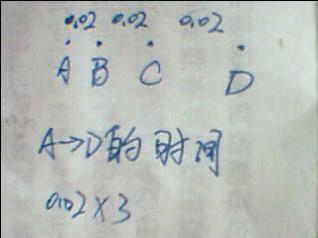 0.02 0.02 0.02
A B C D
A→D的时间
0.02×3